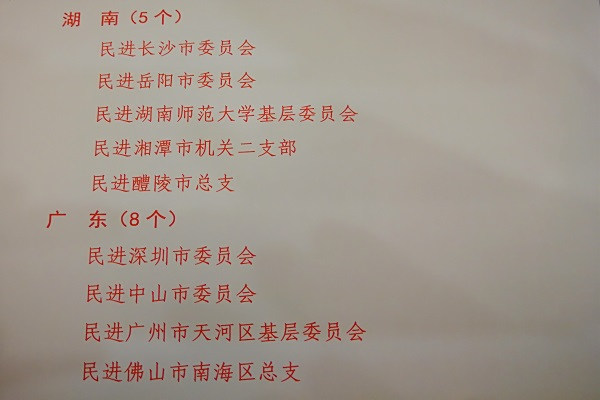 湖 南（5个）
民进长沙市委员会
民进岳阳市委员会
民进湖南师范大学基层委员会
民进湘潭市机关二支部
民进醴陵市总支
广 东（8个）
民进深圳市委员会
民进中山市委员会
民进广州市天河区基层委员会
民进佛山市南海区总支